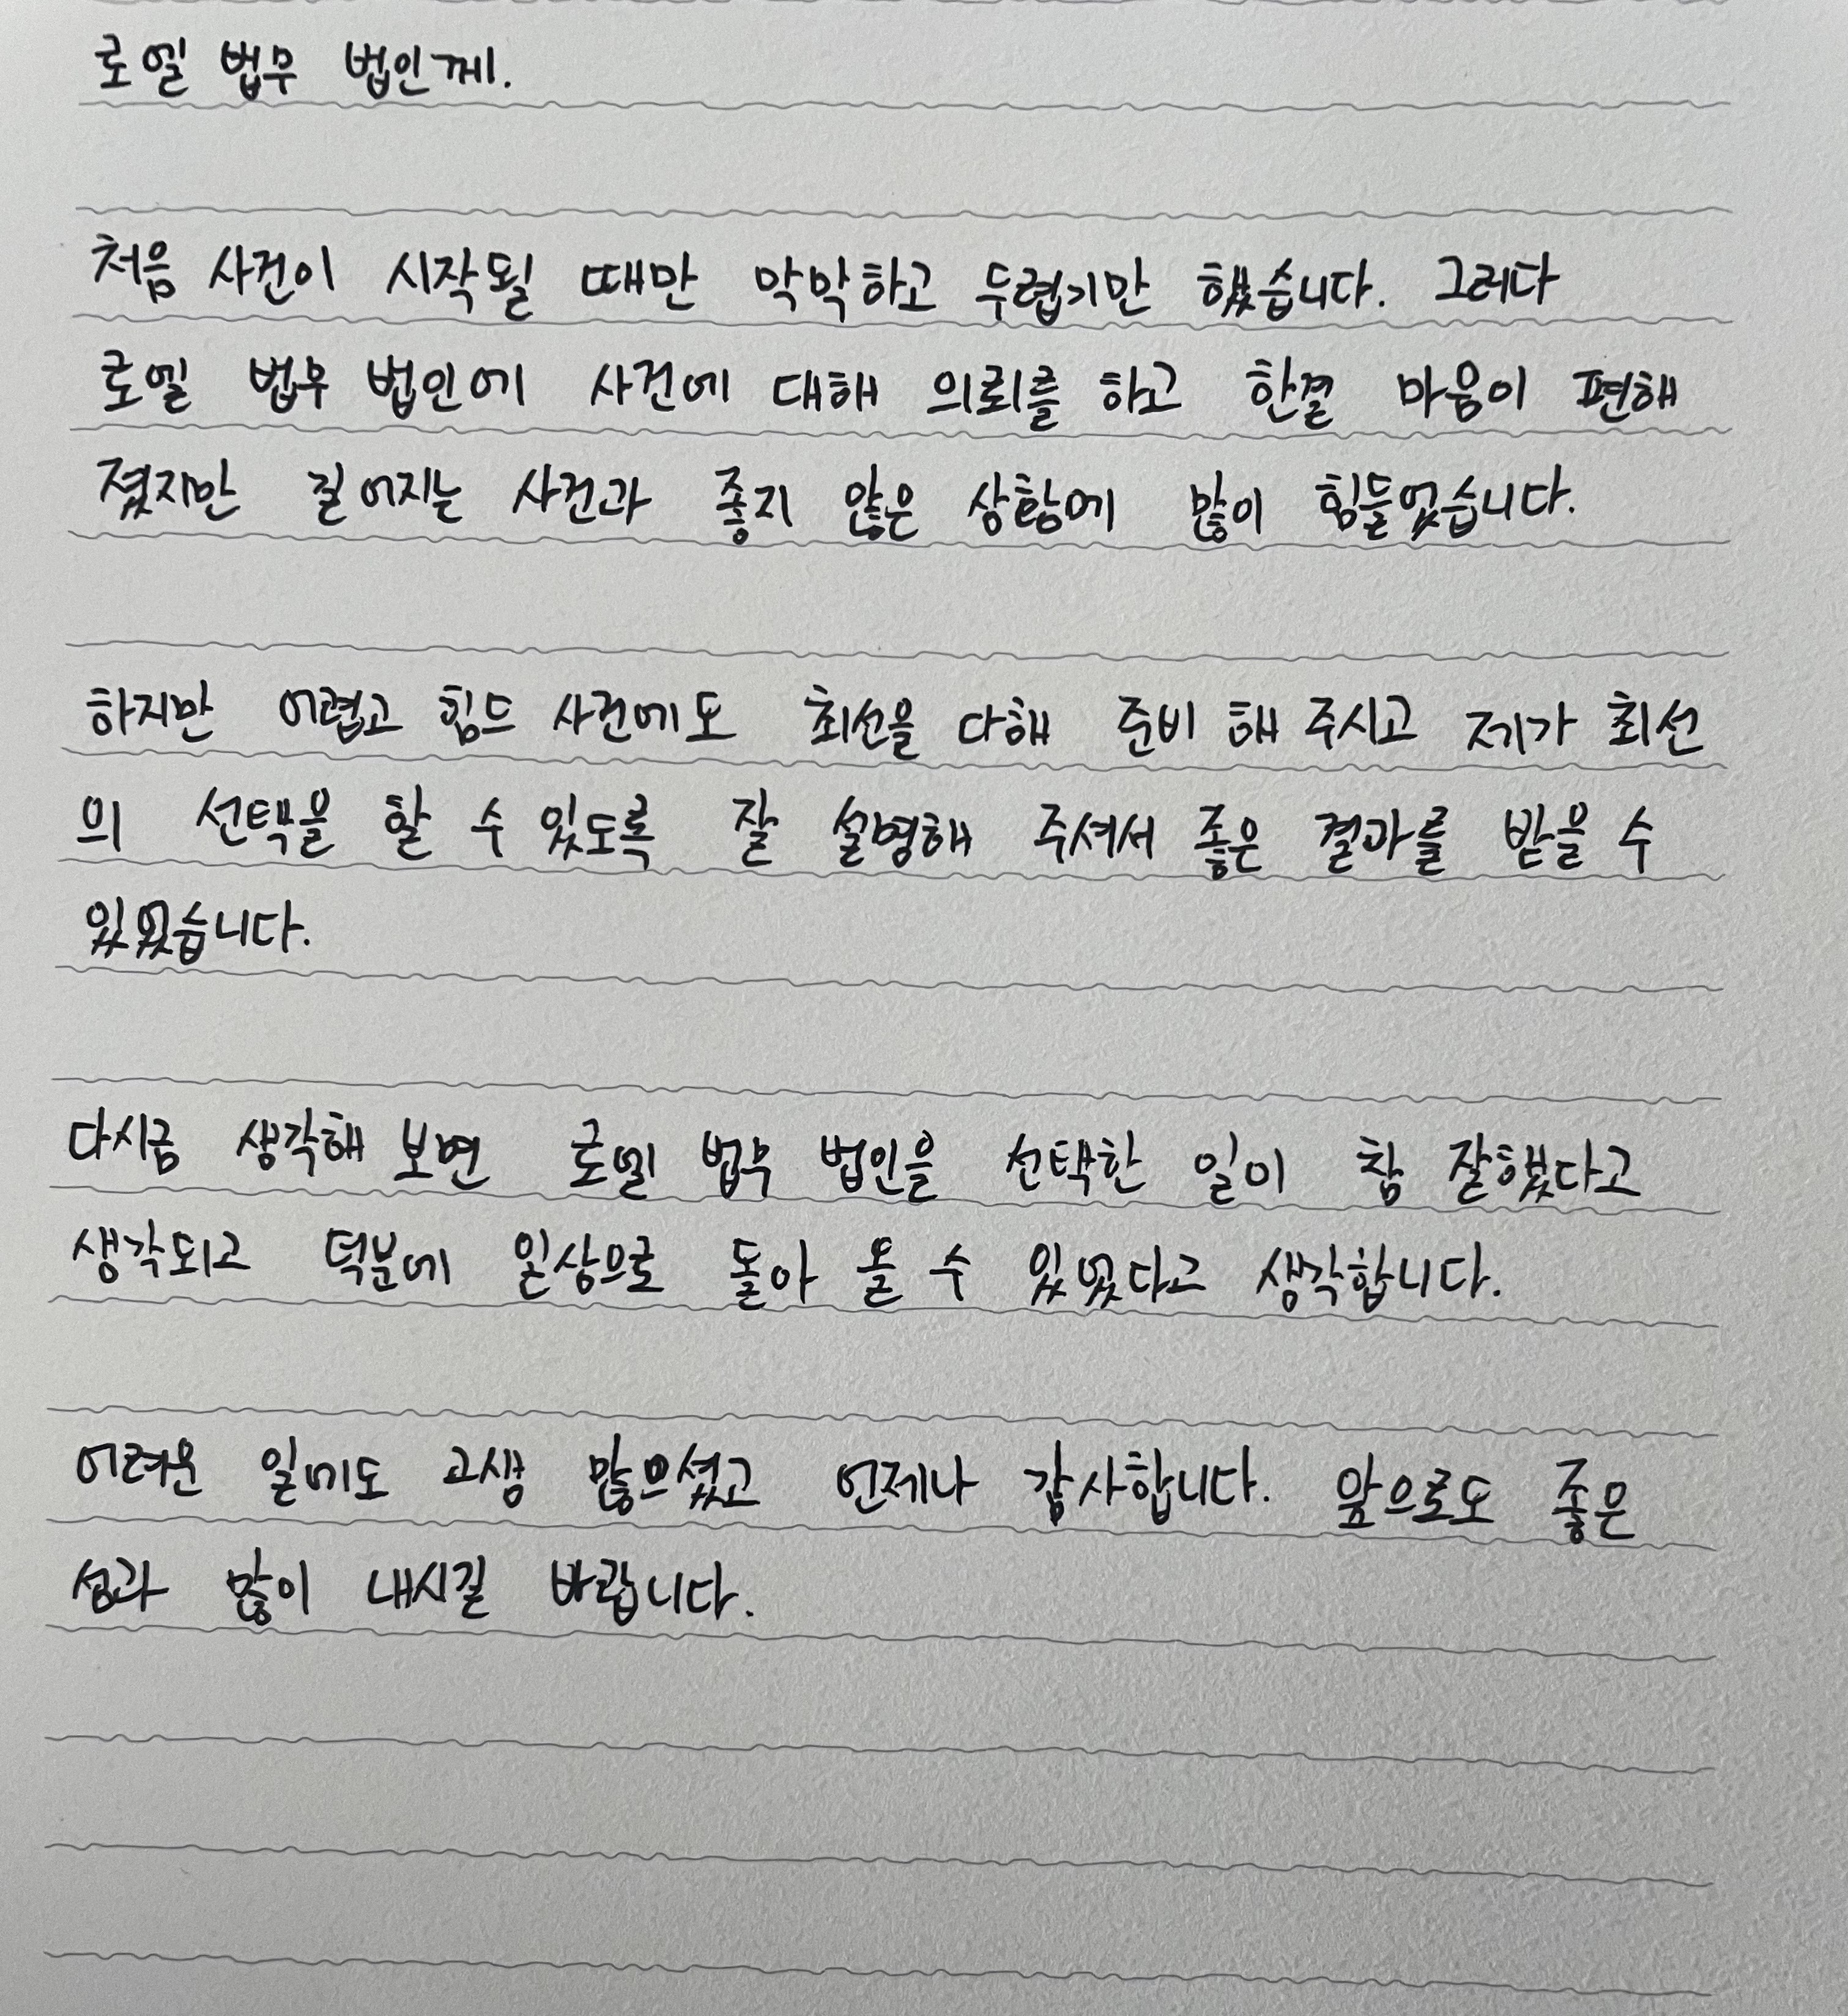 로엘 법무 법인께.
처음 사건이 시작될 때만 막막하고 두렵기만 했습니다. 그러다
로엘 법무 법인에 사건에 대해 의뢰를 하고 한결 마음이 편해
졌지만 길어지는 사건과 좋지 않은 상황에 많이 힘들었습니다.
하지만 어렵고 힘든 사건에도 최선을 다해 준비 해 주시고 제가 최선
의 선택을 할 수 있도록 잘 설명해 주셔서 좋은 결과를 받을 수
있었습니다.
다시금 생각해 보면 로엘 법무 법인을 선택한 일이 참 잘했다고
생각되고 덕분에 일상으로 돌아 올 수 있었다고 생각합니다.
어려운 일에도 고생 많으셨고 언제나 감사합니다. 앞으로도 좋은
성과 많이 내시길 바랍니다.